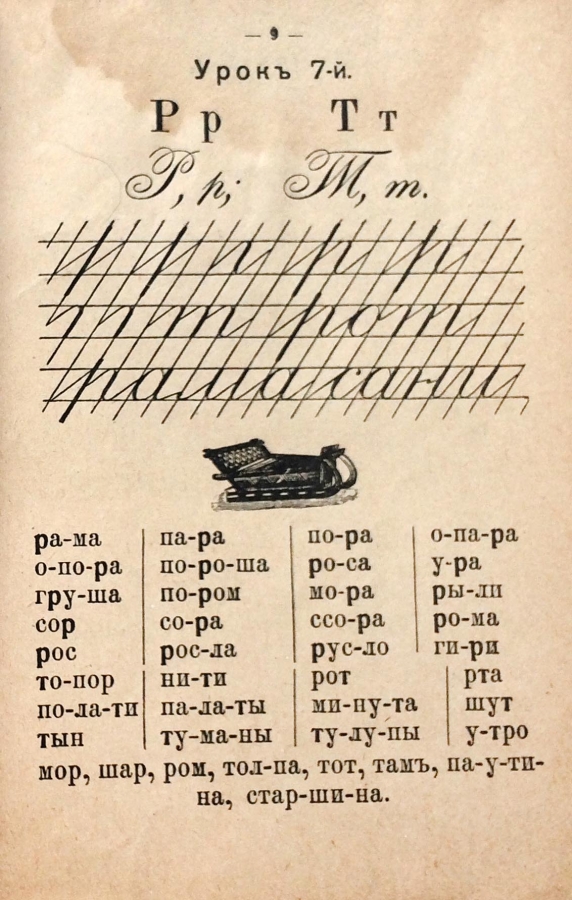 — 9 —
Урокъ 7-й.
Р р Т т
Р, р; Т, т.
р р р р
т т рот
рама сани
ра-ма па-ра по-ра о-па-ра
о-по-ра по-ро-ша ро-са у-ра
гру-ша по-ром мо-ра ры-ли
сор со-ра ссо-ра ро-ма
рос рос-ла рус-ло ги-ри
то-пор ни-ти рот рта
по-ла-ти па-ла-ты ми-ну-та шут
тын ту-ма-ны ту-лу-пы у-тро
мор, шар, ром, тол-па, тот, тамъ, па-у-ти-
на, стар-ши-на.